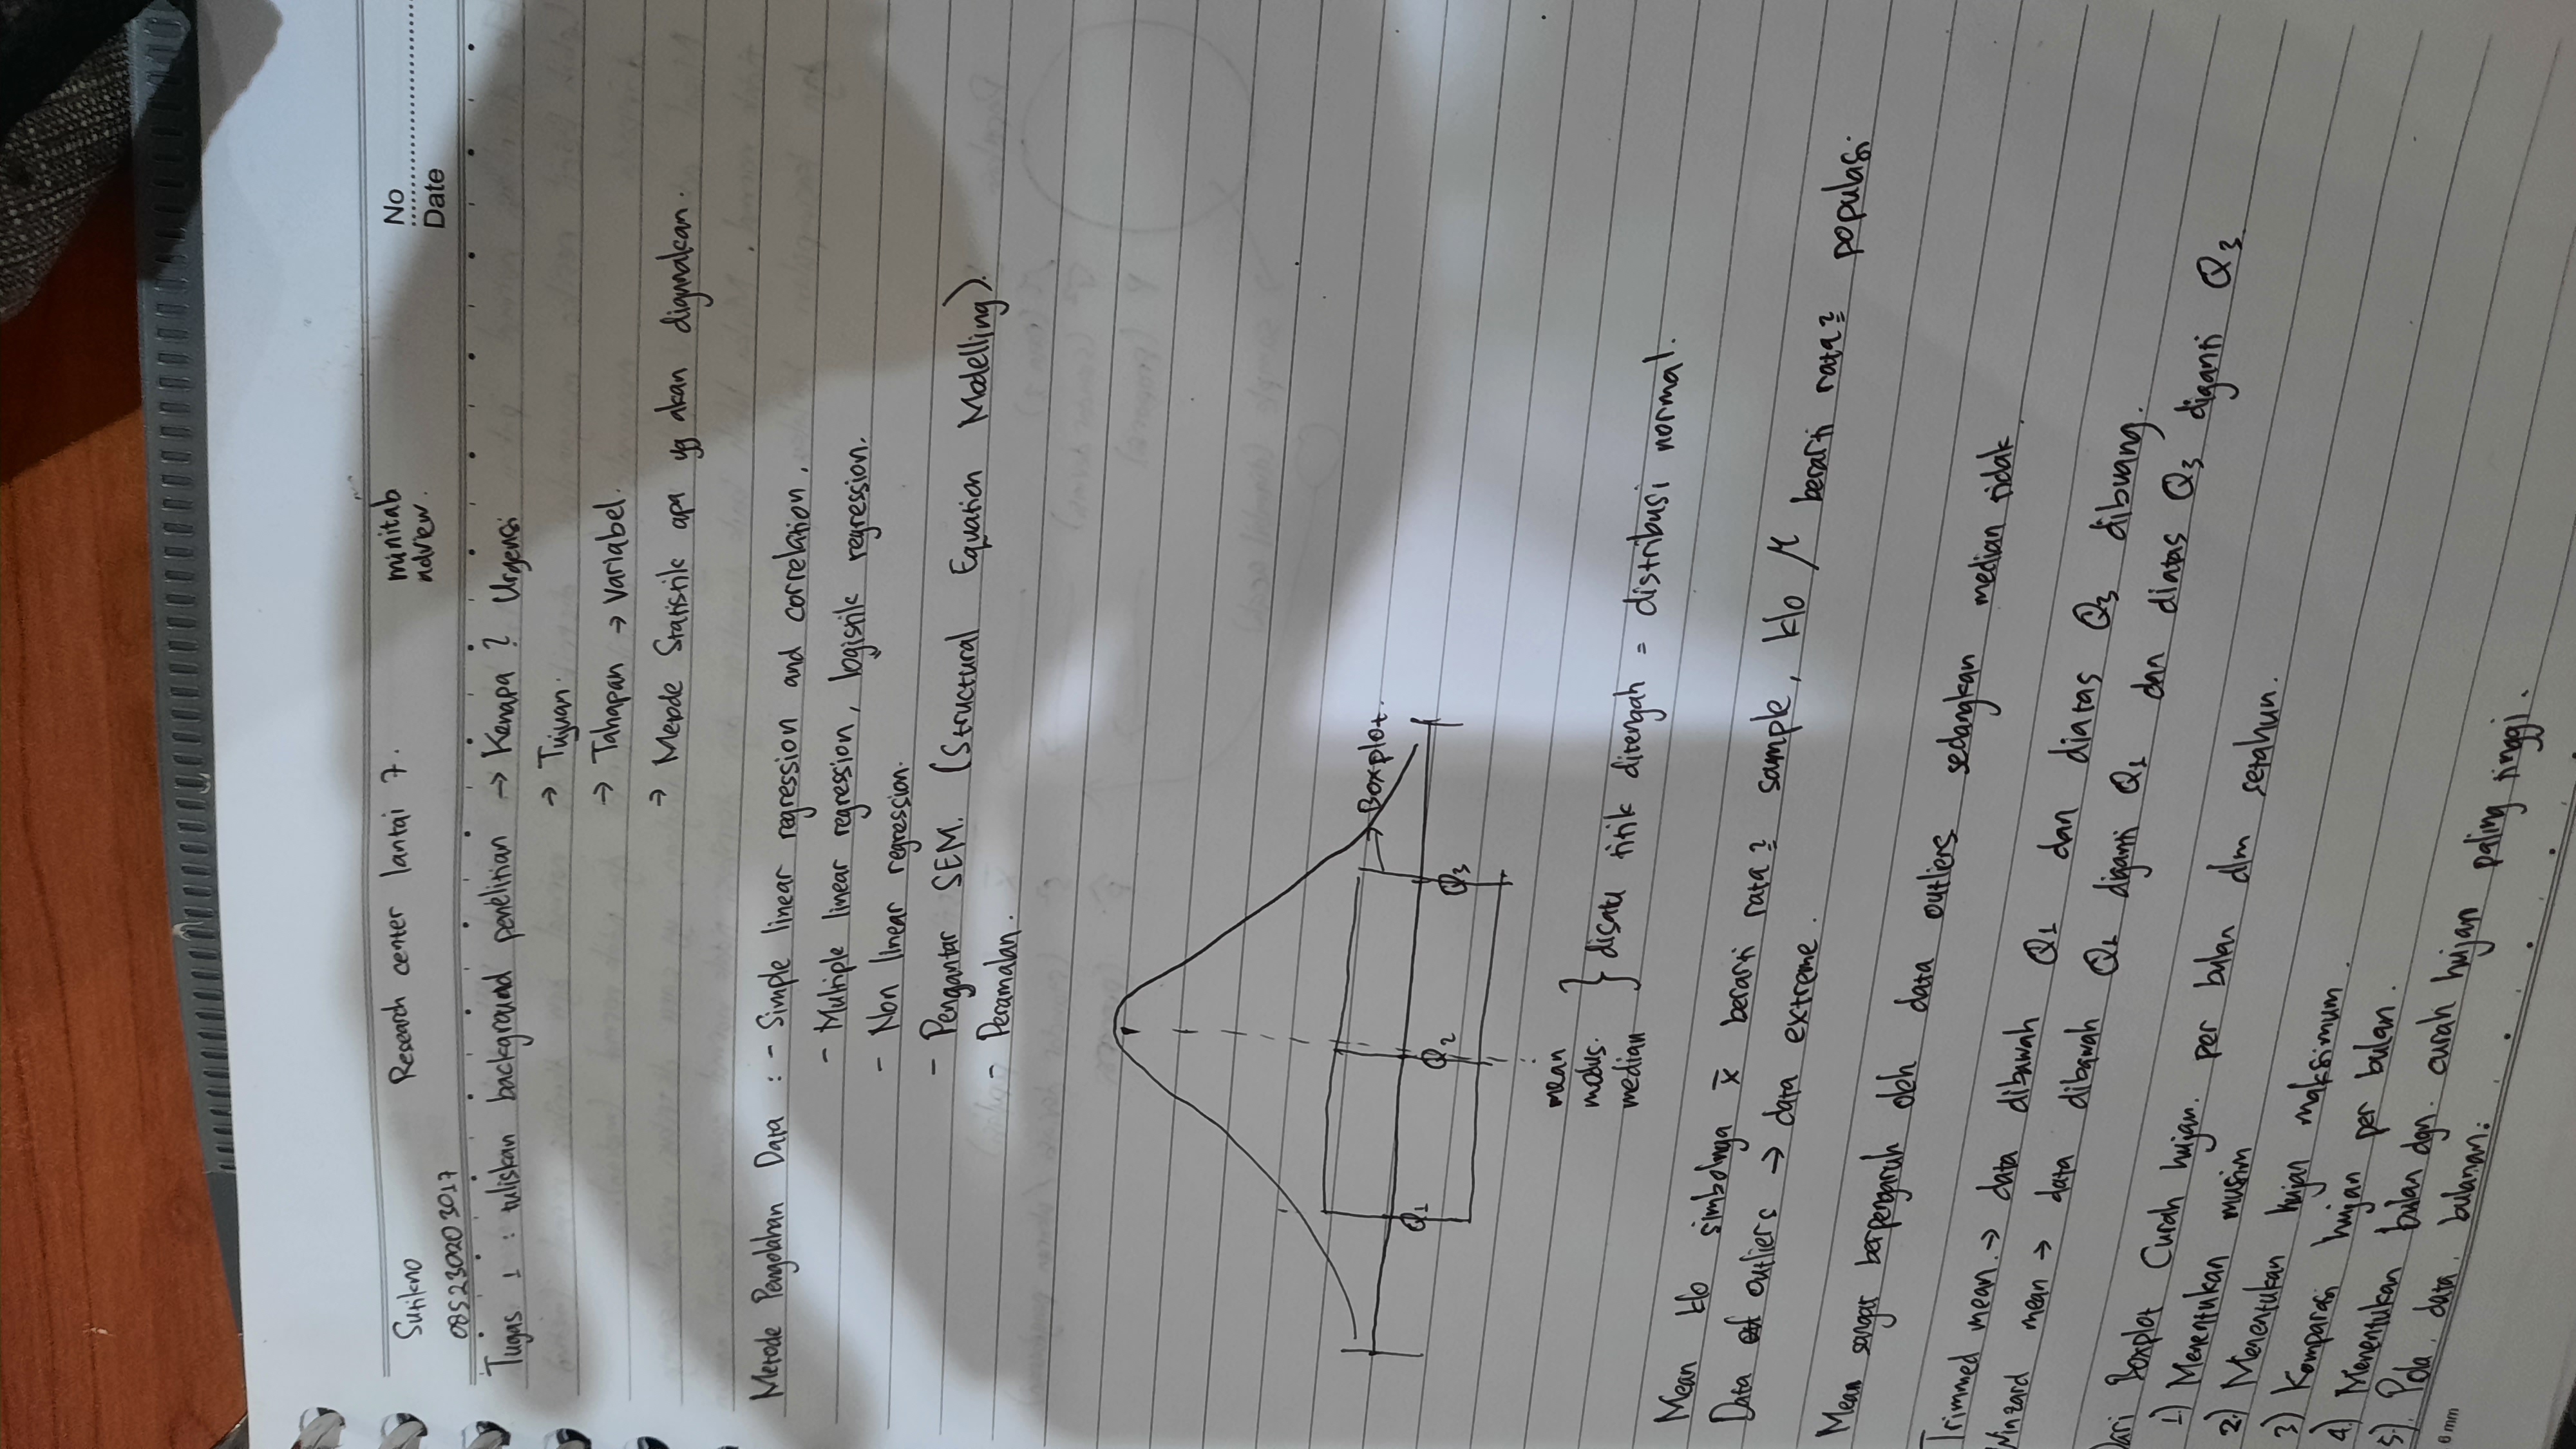 Sutikno Research center lantai 7. minitab No
085230203017 ndview. Date
Tugas 1 : tuliskan background penelitian → Kenapa ? Urgensi
→ Tujuan.
→ Tahapan → Variabel.
→ Metode Statistik apa yg akan digunakan.
Metode Pengolahan Data : - Simple linear regression and correlation.
- Multiple linear regression, logistik regression.
- Non linear regression.
- Pengantar SEM. (Structural Equation Modelling).
- Peramalan.
→ Boxplot.
Q1 Q2 Q3
mean
modus.
median } disatu titik ditengah = distribusi normal.
Mean klo simbolnya x̄ berarti rata2 sample, klo μ berarti rata2 populasi.
Data outliers → data extreme.
Mean sangat berpengaruh oleh data outliers sedangkan median tidak.
Trimmed mean. → data dibawah Q1 dan diatas Q3 dibuang.
Winzard mean → data dibawah Q1 diganti Q1 dan diatas Q3 diganti Q3.
Dari Boxplot Curah hujan. per bulan dlm setahun.
1) Menentukan musim
2) Menentukan hujan maksimum.
3) Komparasi hujan per bulan.
4) Menentukan bulan dgn. curah hujan paling tinggi.
5). Pola. data. bulanan.
8 mm